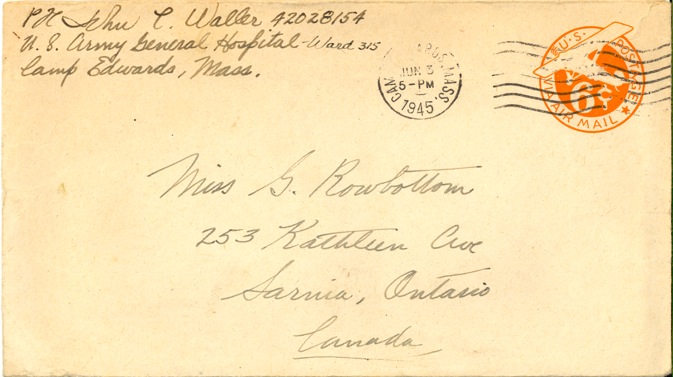 Pfc John C. Waller 42028154
U.S. Army General Hospital - Ward 315
Camp Edwards, Mass.
MASS.
JUN 3
5-PM
1945
U.S. POSTAGE
6¢
VIA AIR MAIL
Miss G. Rowbottom
253 Kathleen Ave
Sarnia, Ontario
Canada